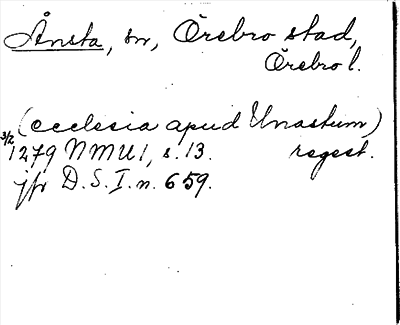 Ånsta, sn, Örebro stad,
Örebro l.
(ecclesia apud Unastum)
3/2 1279 NMU 1, s. 13. regest.
jfr D. S. I. n. 659.